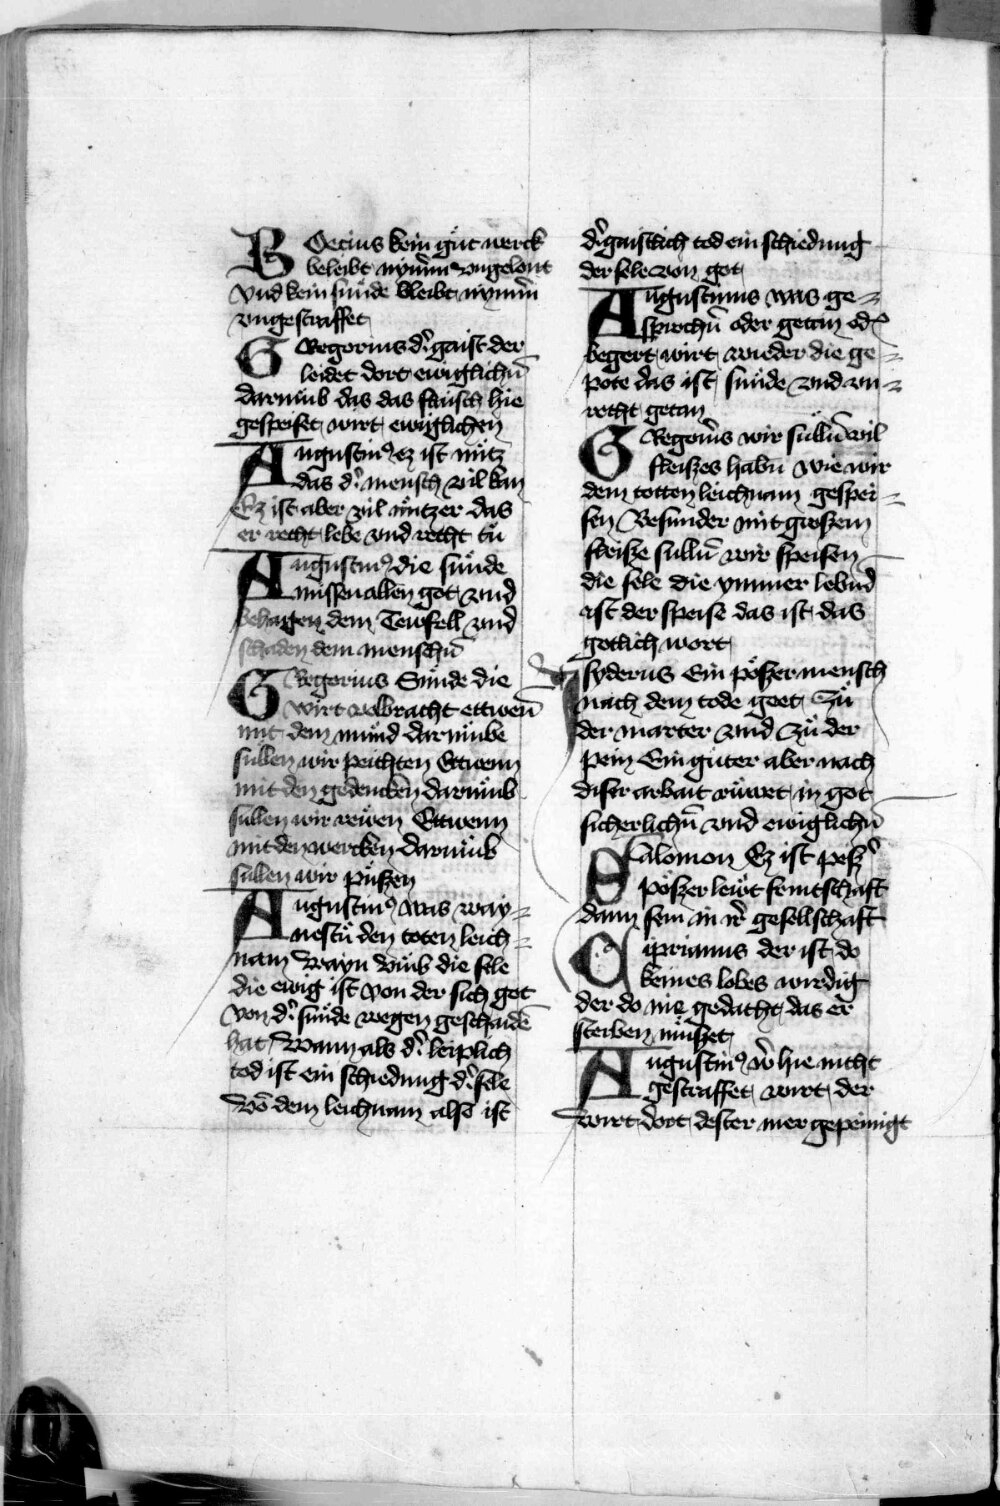 BOecius kein gůt werck
beleibt nym̄m̄ ungelont
Vnd kein sünde bleibt nym̄m̄
vngestraffet
GRegorius d' gaist der
leidet dort ewiglichn̄
darumb das das flaisch hie
gespeiset wirt ewiglichen
Augustin⁹ ez ist nütz
das d' mensch vil kan
Ez ist aber vil nützer das
er recht lebe vnd recht tů
Augustin⁹ die sünde
missenallen got vnd
behagen dem Tewfell vnd
schaden dem menschn̄
GRegorius Sünde die
wirt volbracht ettwen̄
mit dem mund darumbe
süllen wir peichten Ettwenn
mit den gedencken darumb
süllen wir rewen Ettwenn
mit den wercken darumb
süllen wir püszen
Augustin⁹ was way=
nestu den toten leich=
nam Wayn vmb die sele
die ewig ist von der sich got
von d' sünde wegen geschaidē
hat Wann als d' leiplich
tod ist ein schiedung d' sele
Vō dem leichnam also ist
d' gaistlich tod ein schiedung
der sele von got
Augustinus was ge=
sprochn̄ oder getan od'
begert wirt wieder die ge=
pote das ist sünde vnd vn=
recht getan
GRegori⁹ wir sülln̄ vil
fleiszes habn̄ wie wir
dem totten leichnam gespei=
sen Besunder mit groszem
fleisze sülln̄ wir speisen
die sele die ymmer lebnd̄
ist der speise das ist das
gotlich wort
Jsyderus Ein pöszer mensch
nach dem tode geet Zů
der marter vnd Zů der
pein Ein güter aber nach
diser arbait rüwet in got
sicherlichn̄ vnd ewiglichn̄
Salomon Ez ist pesz'
pöszer lewt feintschaft
dann sein in ir' gesellschaft
Ciprianus der ist do
keines lobes wirdig
der do nie gedacht das er
sterben müszet
Augustin⁹ w' hie nicht
gestraffet wirt der
wirt dort dester mer gepeinigt